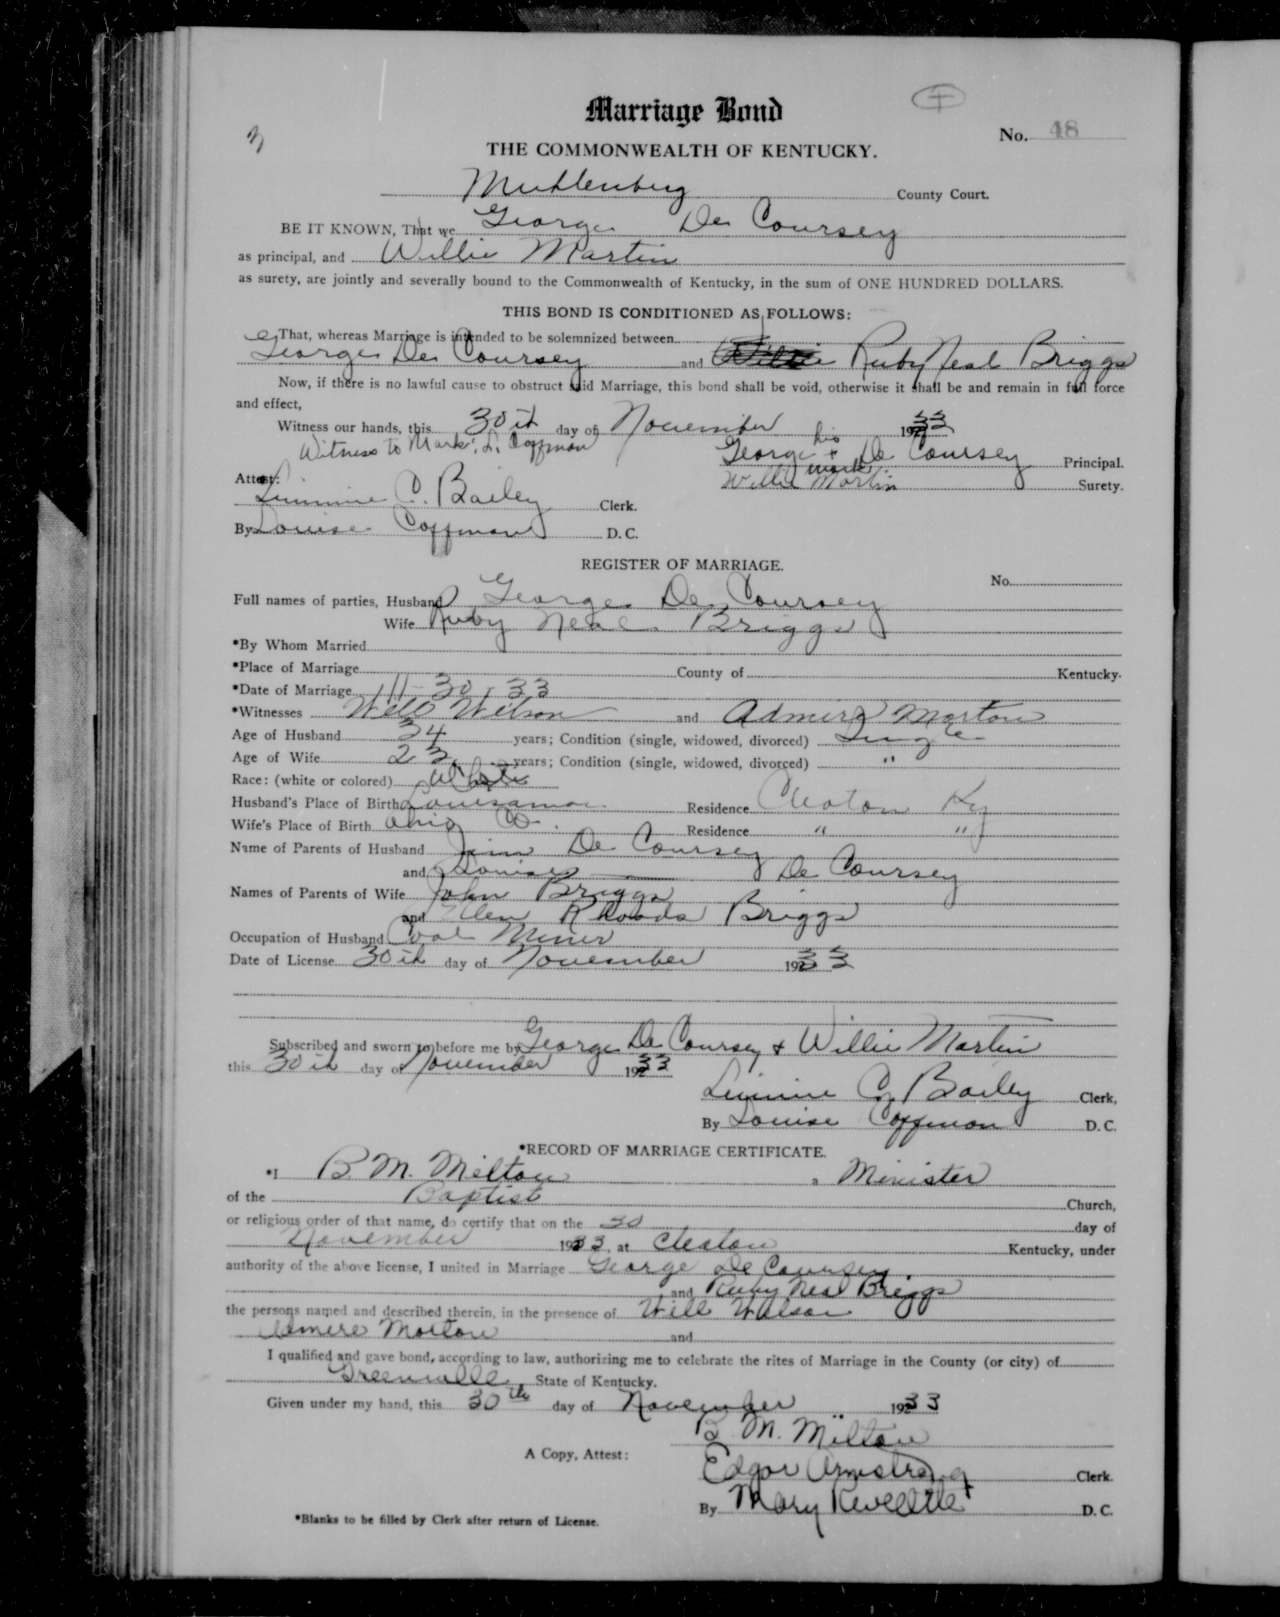 Marriage Bond
3
No. 48
THE COMMONWEALTH OF KENTUCKY.
Muhlenberg County Court.
BE IT KNOWN, That we George De Coursey
as principal, and Willie Martin
as surety, are jointly and severally bound to the Commonwealth of Kentucky, in the sum of ONE HUNDRED DOLLARS.
THIS BOND IS CONDITIONED AS FOLLOWS:
That, whereas Marriage is intended to be solemnized between
George De Coursey and Willie Ruby Neal Briggs
Now, if there is no lawful cause to obstruct said Marriage, this bond shall be void, otherwise it shall be and remain in full force
and effect,
Witness our hands, this 30th day of November 1933
Witness to Mark: L. Coffman
his
George + De Coursey Principal.
mark
Attest: Willie Martin Surety.
C. Bailey Clerk.
By Louise Coffman D. C.
REGISTER OF MARRIAGE.
No.
Full names of parties, Husband George De Coursey
Wife Ruby Neal Briggs
*By Whom Married
*Place of Marriage County of Kentucky.
*Date of Marriage 11-30-33
*Witnesses Will Wilson and Admire Morton
Age of Husband 34 years; Condition (single, widowed, divorced) Single
Age of Wife 23 years; Condition (single, widowed, divorced) "
Race: (white or colored) White
Husband's Place of Birth Residence Cleaton Ky
Wife's Place of Birth Ohio Co. Residence " "
Name of Parents of Husband Jim De Coursey
and Louise De Coursey
Names of Parents of Wife John Briggs
and Ellen Rhoads Briggs
Occupation of Husband Coal Miner
Date of License 30th day of November 1933
Subscribed and sworn to before me by George De Coursey & Willie Martin
this 30th day of November 1933
C. Bailey Clerk,
By Louise Coffman D. C.
*RECORD OF MARRIAGE CERTIFICATE.
*I B. M. Milton a Minister
of the Baptist Church,
or religious order of that name, do certify that on the 30 day of
November 1933, at Cleaton Kentucky, under
authority of the above license, I united in Marriage George De Coursey
and Ruby Neal Briggs
the persons named and described therein, in the presence of Will Wilson
Admire Morton and
I qualified and gave bond, according to law, authorizing me to celebrate the rites of Marriage in the County (or city) of
Greenville State of Kentucky.
Given under my hand, this 30th day of November 1933
B. M. Milton
A Copy, Attest:
Edgar Armstrong Clerk.
By Mary D. C.
*Blanks to be filled by Clerk after return of License.